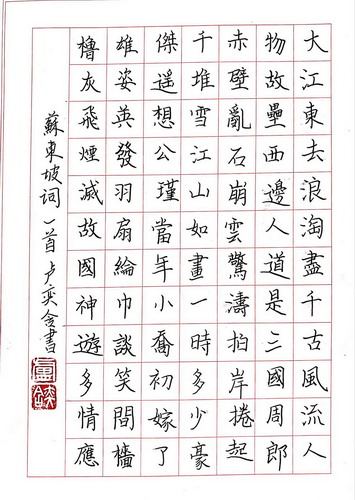 大江東去浪淘盡千古風流人
物故壘西邊人道是三國周郎
赤壁亂石崩雲驚濤拍岸捲起
千堆雪江山如畫一時多少豪
傑遥想公瑾當年小喬初嫁了
雄姿英發羽扇綸巾談笑間檣
櫓灰飛煙滅故國神遊多情應
蘇東坡词一首卢奕書